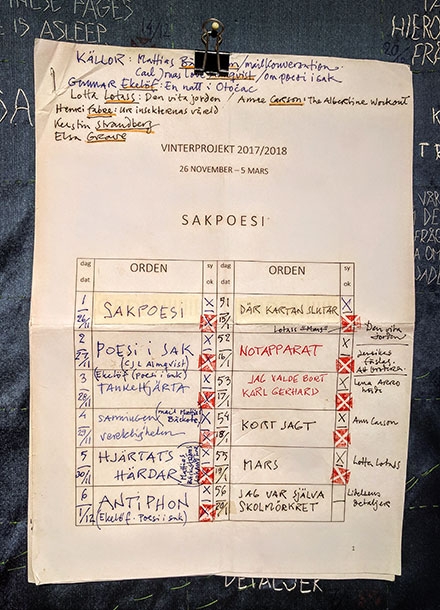 THESE PAGES
IS ASLEEP
KÄLLOR: Mathias /mailkonversation
Carl Jonas Love /om poesi i sak
GUNNAR Ekelöf: En natt i Otočac
Lotta Lotass: Den vita jorden / Anne Carson: The Albertine Workout
Henri Fabre: Ur insekternas värld
Kerstin Strandberg
Elsa Grave
VINTERPROJEKT 2017/2018
26 NOVEMBER – 5 MARS
SAKPOESI
dag
dat
ORDEN
sy
ok
dag
dat
ORDEN
sy
ok
1
26/11
SAKPOESI
X
51
15/1
DÄR KARTAN SLUTAR
X
Lotass "Mars"
Den vita
jorden
2
27/11
POESI i SAK
(CJL Almqvist)
X
52
16/1
NOTAPPARAT
X
3
28/11
Ekelöf (Poesi i sak)
TANKEHJÄRTA
X
53
17/1
JAG VALDE BORT
KARL GERHARD
X
Lena
4
29/11
SANNINGEN
verkligheten
X
54
18/1
KORT SAGT
X
Ann Carson
5
30/11
HJÄRTATS
HÄRDAR
X
55
19/1
MARS
X
Lotta Lotass
6
1/12
ANTIPHON
(Ekelöf · Poesi i sak)
X
56
20/1
JAG VAR SJÄLVA
SKOLMÖRKRET
detaljer
1
DETALJER